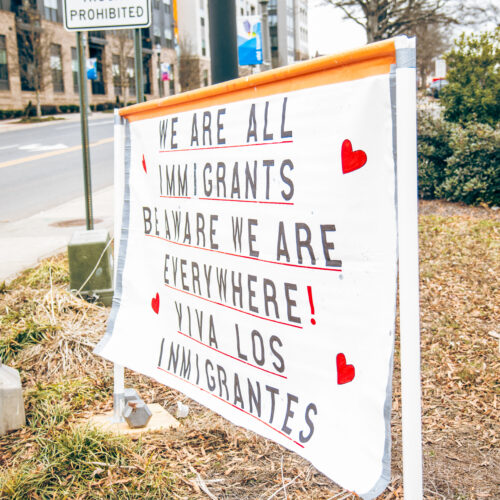 PROHIBITED
WE ARE ALL
IMMIGRANTS
BEAWARE WE ARE
EVERYWHERE!
VIVA LOS
INMIGRANTES